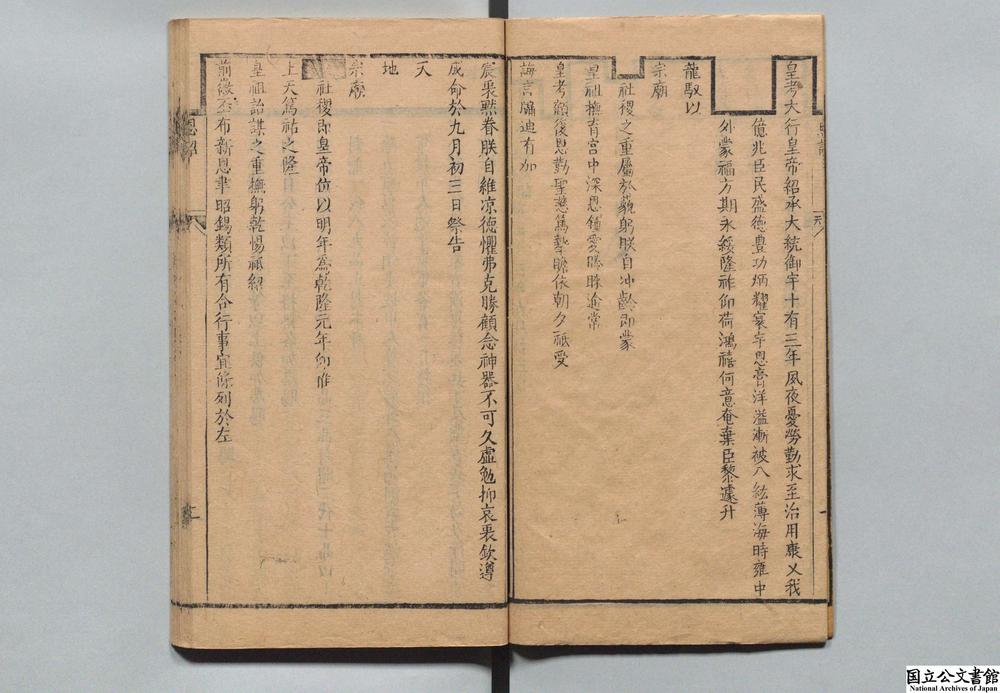 皇考大行皇帝紹承大統御宇十有三年夙夜憂勞勤求至治用康乂我
億兆臣民盛德豊功炳耀寰宇恩膏洋溢漸被八紘薄海時雍中
外蒙福方期永綏隆祚仰荷鴻禧何意奄棄臣黎遽升
龍馭以
宗廟
社稷之重屬於藐躬朕自冲齡即蒙
皇祖撫育宮中深恩鍾愛逾常
皇考顧後恩勤聖慈篤摯瞻依朝夕祗受
誨言牖迪有加
宸衷默眷朕自維凉德懼弗克勝顧念神器不可久虛勉抑哀衷欽遵
成命於九月初三日祭告
天
地
宗廟
社稷即皇帝位以明年為乾隆元年仰惟
上天篤祜之隆
皇祖詒謀之重撫躬乾惕祗紹
前徽丕布新恩聿昭錫類所有合行事宜條列於左
恩詔
国立公文書館
National Archives of Japan